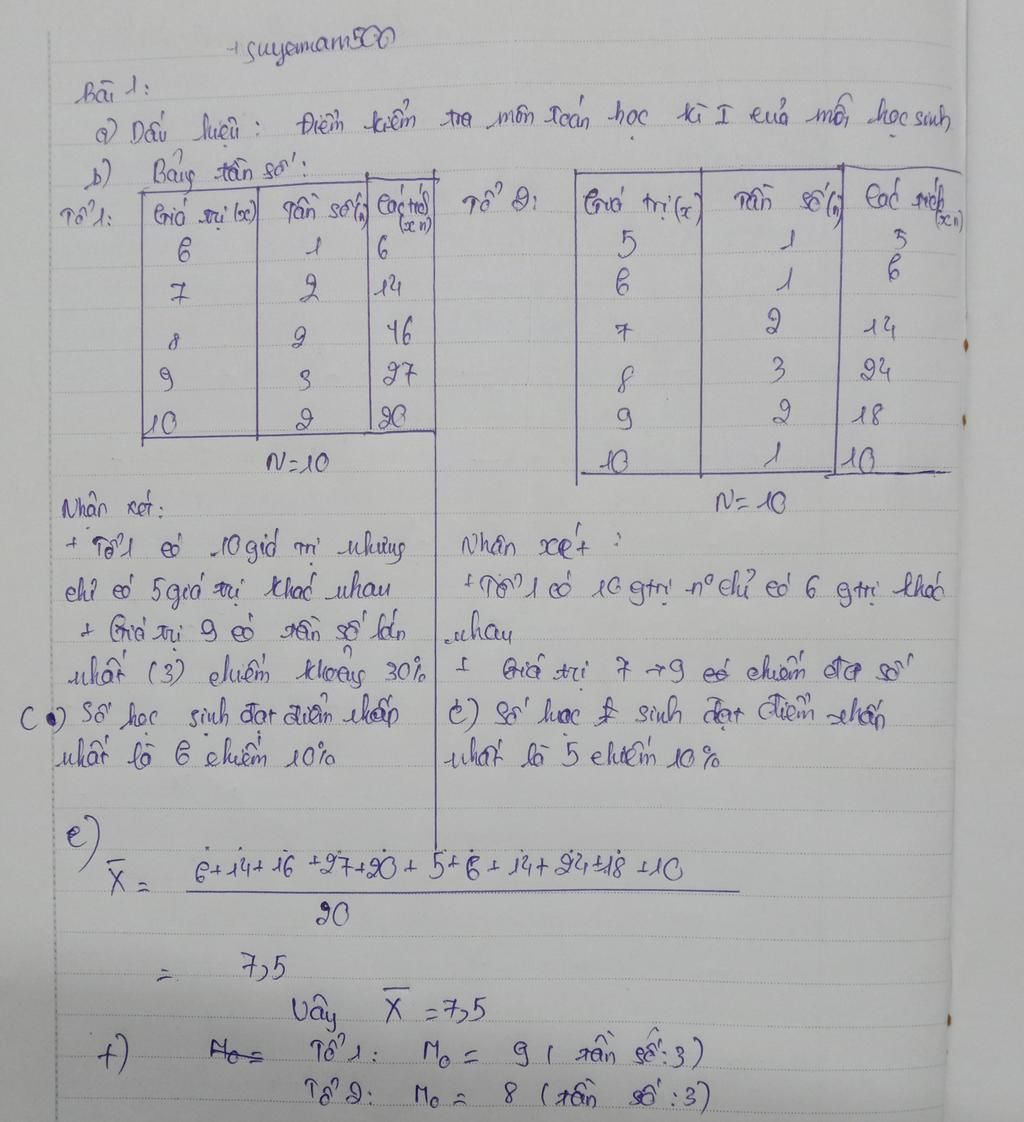 +suyamam500
Bài 1:
a) Dấu hiệu : Điểm kiểm tra môn Toán học kì I của mỗi học sinh
b) Bảng tần số :
Tổ 1:
Giá trị (x) Tần số (n) Các tích (x n)
6 1 6
7 2 14
8 2 16
9 3 27
10 2 20
N=10
Tổ 2:
Giá trị (x) Tần số (n) Các tích (x n)
5 1 5
6 1 6
7 2 14
8 3 24
9 2 18
10 1 10
N= 10
Nhận xét:
+ Tổ 1 có 10 giá trị nhưng
chỉ có 5 giá trị khác nhau
+ Giá trị 9 có tần số lớn
nhất (3) chiếm khoảng 30%
c) Số học sinh đạt điểm thấp
nhất là 6 chiếm 10%
Nhận xét :
+ Tổ 1 có 10 gtrị n° chỉ có 6 gtrị khác
nhau
+ Giá trị 7 → 9 chiếm đa số
c) Số học sinh đạt điểm thấp
nhất là 5 chiếm 10%
e)
X̄ = 6+14+16+27+20+5+6+14+24+18+10
20
= 7,5
Vậy X̄ = 7,5
f) Mo = Tổ 1: Mo = 9 ( tần số : 3)
Tổ 2: Mo = 8 (tần số : 3)